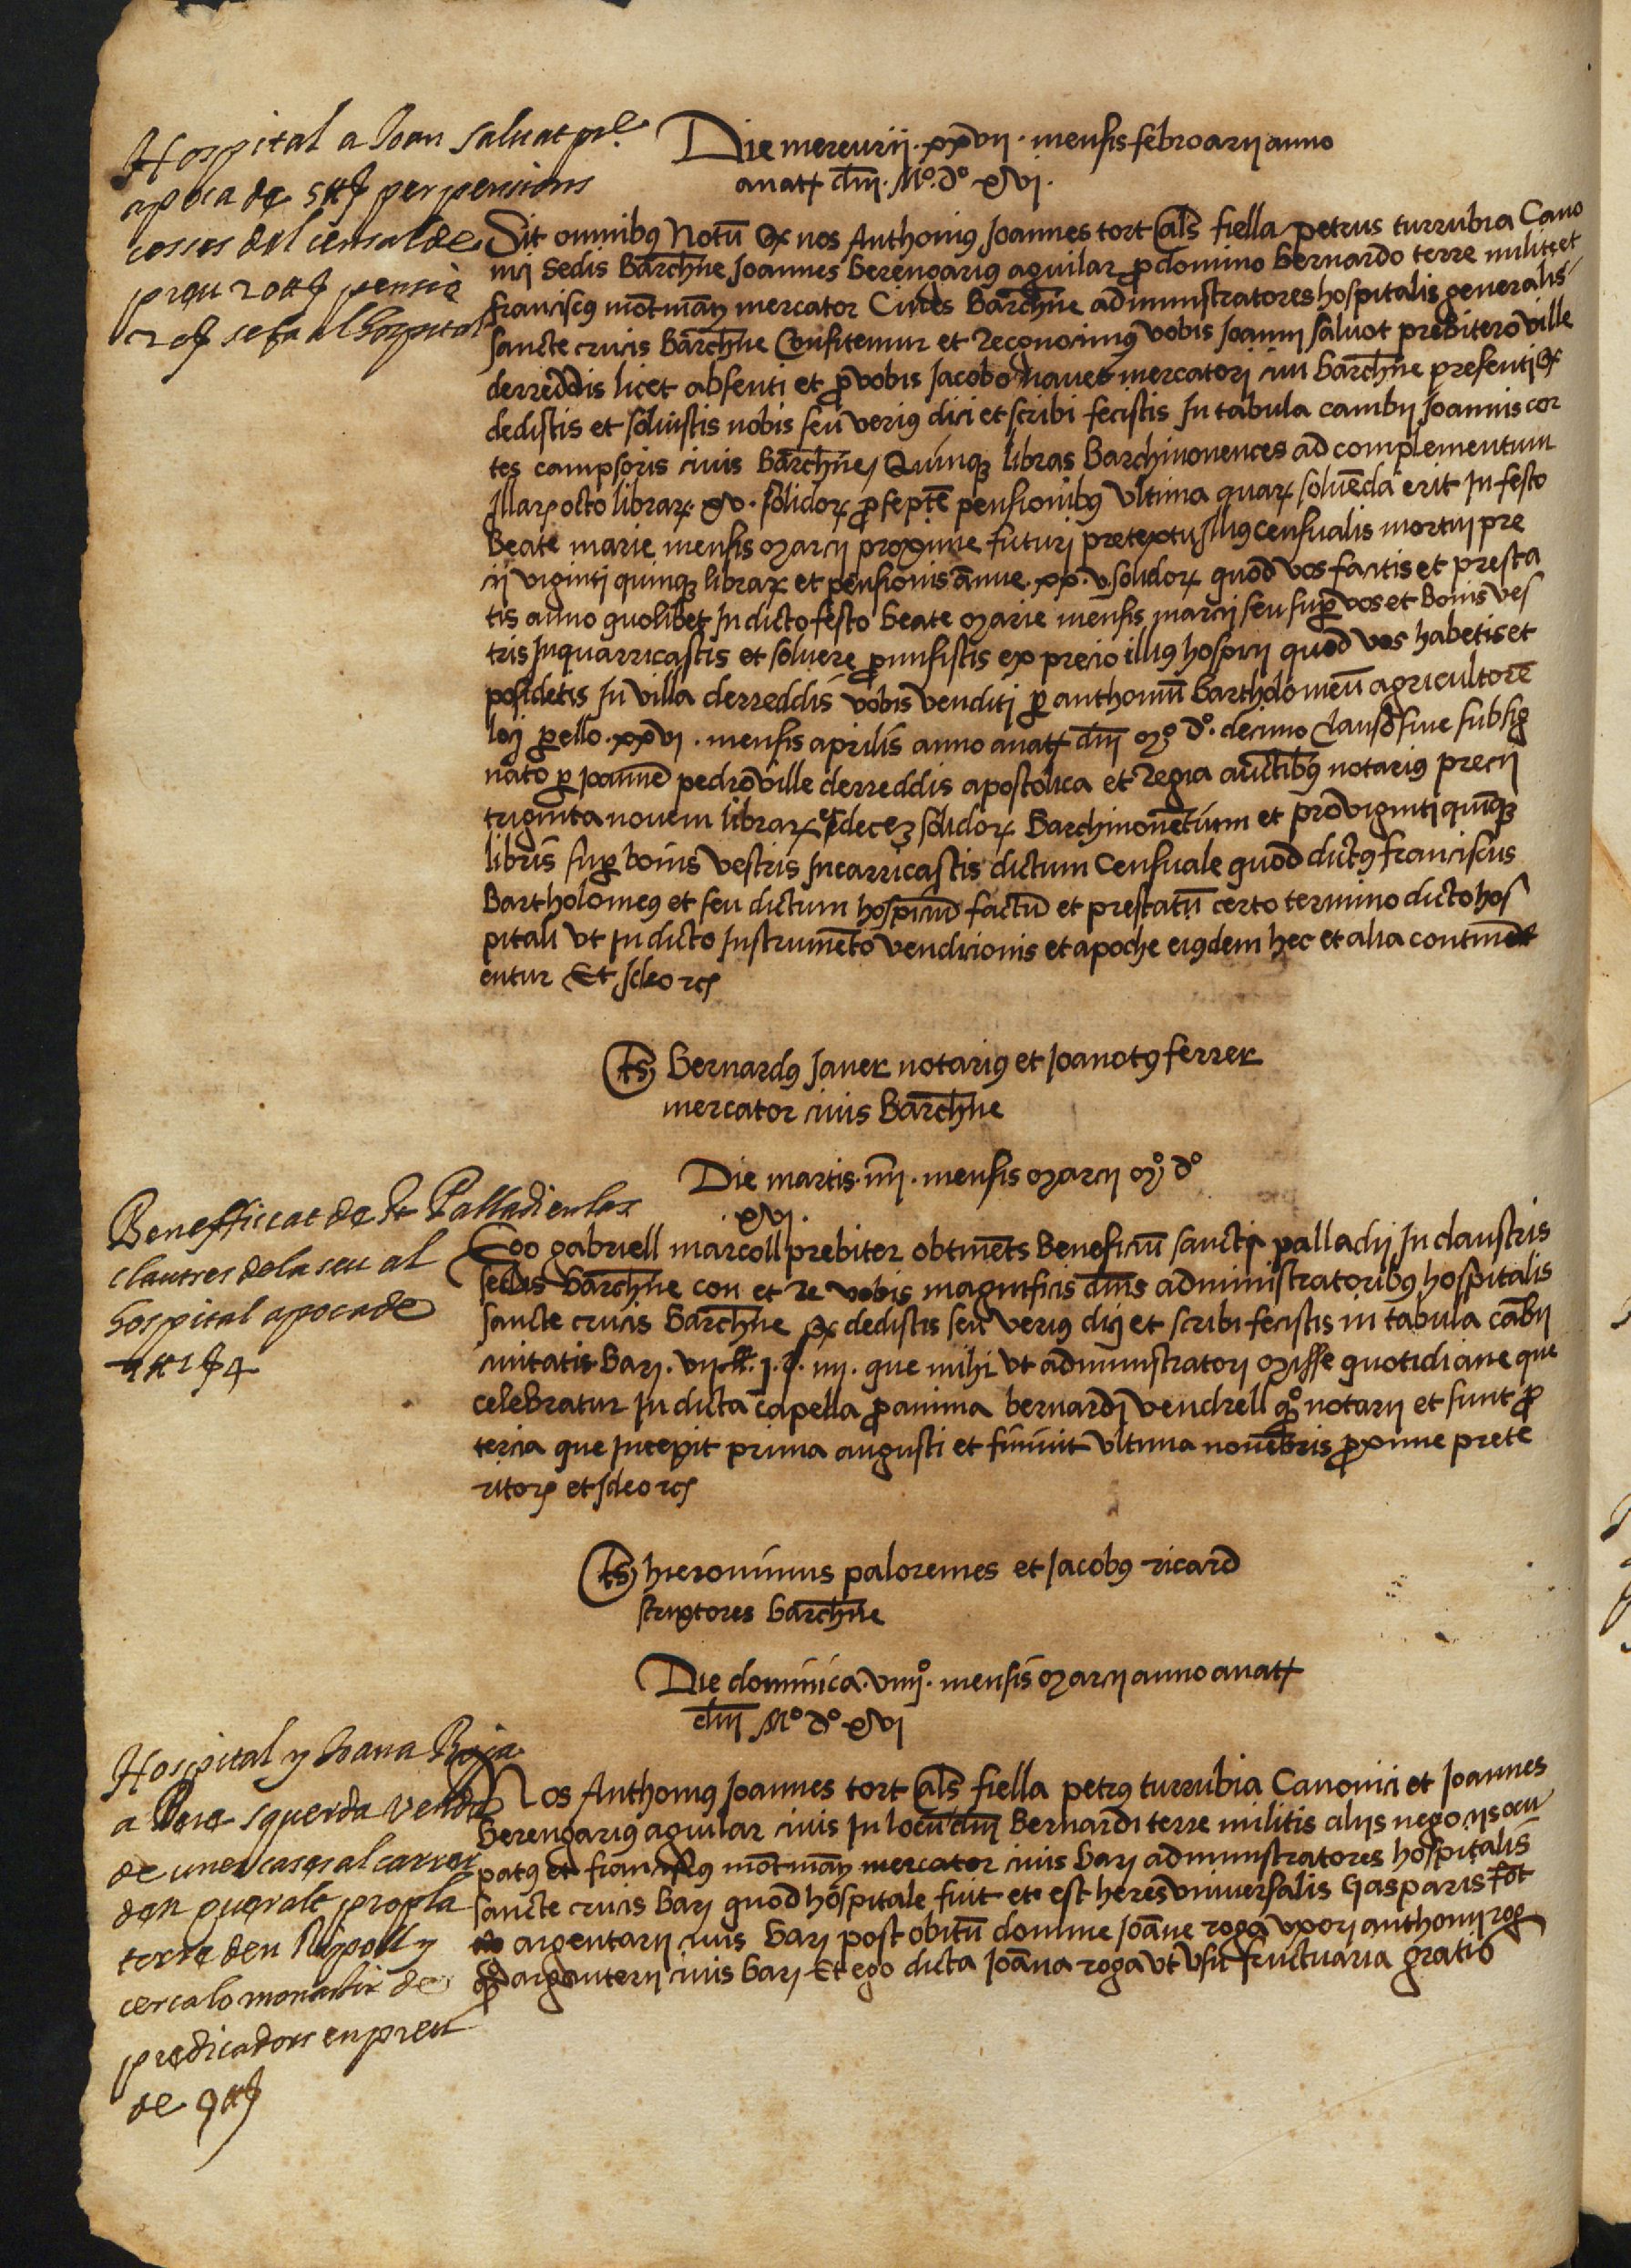 Hospital a Joan Salvat pre.
apoca de 5 ₶ per pensions
cosses del censal de
preu 20 ₶ pensio
Die mercurii. xxvii. mensis febroarii anno
anatt dnj. Mº. dº xvi.
Sit omnibus Notū qz nos Anthonius Joannes tort als fiella petrus turrubia Cano
nij sedis Barchne Joannes berengarius aguilar p domino bernardo terre milite et
franciscus mōtmāy mercator Cives Barchne administratores hospitalis generalis
sancte crucis Barchne Confitemur et Recognocimus vobis Joannj salvot prebitero ville
derreddis licet absenti et p vobis Jacobo navet mercatorj civi barchne presentj qz
dedistis et solvistis nobis seu verius dici et scribi fecistis In tabula cambij Joannis cor
tes campsoris civis Barchne, Quinqz libras Barchinonences ad complementum
Illarz octo librarz. xv. solidorz p septē pensionibus ultima quarz solvēda erit In festo
Beate marie mensis marcij proxime futurj pretextu Illius censualis mortuj pre
cij vigintj quinqz librarz et pensionis ānue. xx.v. solidorz quod vos facitis et presta
tis anno quolibet In dicto festo beate marie mensis marcij seu sup vos et bonis ves
tris Inquarricastis et solvere pmisistis ex precio illius hospicij quod vos habetis et
posidetis In villa derreddis vobis venditj p anthoniū bartholomeū agricultorē
locj pello. xxvi. mensis aprilis anno anatt dnj mº dº. decimo clauso sive subsig
nato p Joannē pedro ville derreddis apostolica et Regia auctibus notarius precij
triginta novem librarz et decez solidorz Barchinonētium et pro viginti quinqz
libris sup bonis vestris Incarricastis dictum Censuale quod dictus franciscus
Bartholomeus et seu dictum hospiciū factū et prestatū certo termino dicto hos
pitali ut In dicto Instrumēto vendicionis et apoche eiusdem hec et alia continēt
entur Et Ideo rcs
ts, bernardus Janer notarius et Joanotus ferrer
mercator civis Barchne
Benefficiat de St Palladi en las
clautres de la seu al
hospital apoca de
7 ₶ 1 ʃ 4
Die martis. iiij. mensis marcij mº, dº
. xvi.
Ego gabriell marcoll prebiter obtinēts Beneficiū sanctj palladij In claustris
sedis barchne con et re vobis magnificis dnis administratoribus hospitalis
sancte crucis barchne qz dedistis seu verius dicj et scribi fecistis in tabula cābij
civitatis barj. vij ₶. j. ʃ. iiij. que mihi ut administratorj misse quotidiane que
celebratur In dicta capella p anima bernardj vendrell qº notarij et sunt p
tercia que Incepit prima augusti et finivit ultima novēbris pxime prete
ritorz et Ideo rcs
ts, hieronimus paloremes et Jacobus ricard
scriptores barchne
Die dominica. viiijº. mensis marcij anno anatt
dnj Mº dº xvi
Hospital y Joana Roja
a Pere squerda venda
de unes cases al carrer
den queralt prop la
torre den Ripoll y
cerca lo monastir de
predicadors en preu
de 9 ₶
Nos Anthonius Joannes tort als fiella petrus turrubia Canonici et Joannes
berengarius aguilar civis In locū dnj Bernardi terre militis aliis negociis ocu
patus et franciscus mōtmāy mercator civis barj administratores hospitalis
sancte crucis barj quod hospitale fuit et est heres universalis Gasparis
argentarij civis barj post obitū domine Joāne roga uxorj anthonij rog
qº argenterij civis barj Et ego dicta Joāna roga ut usufructuaria gratis